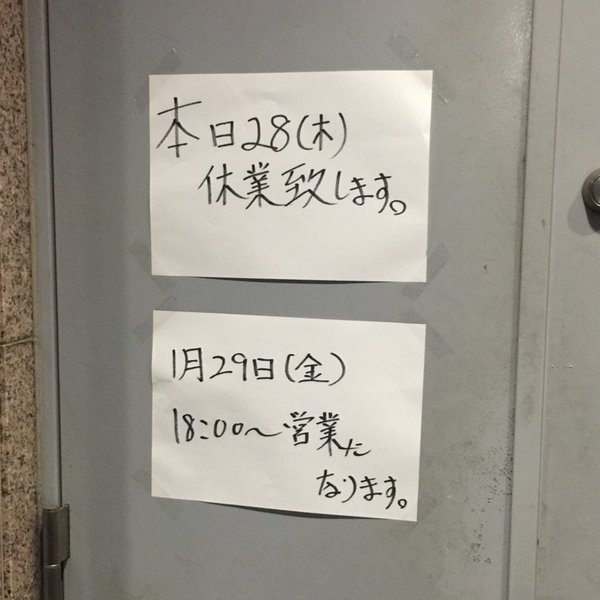 本日28(木)
休業致します。
1月29日(金)
18:00〜営業に
なります。